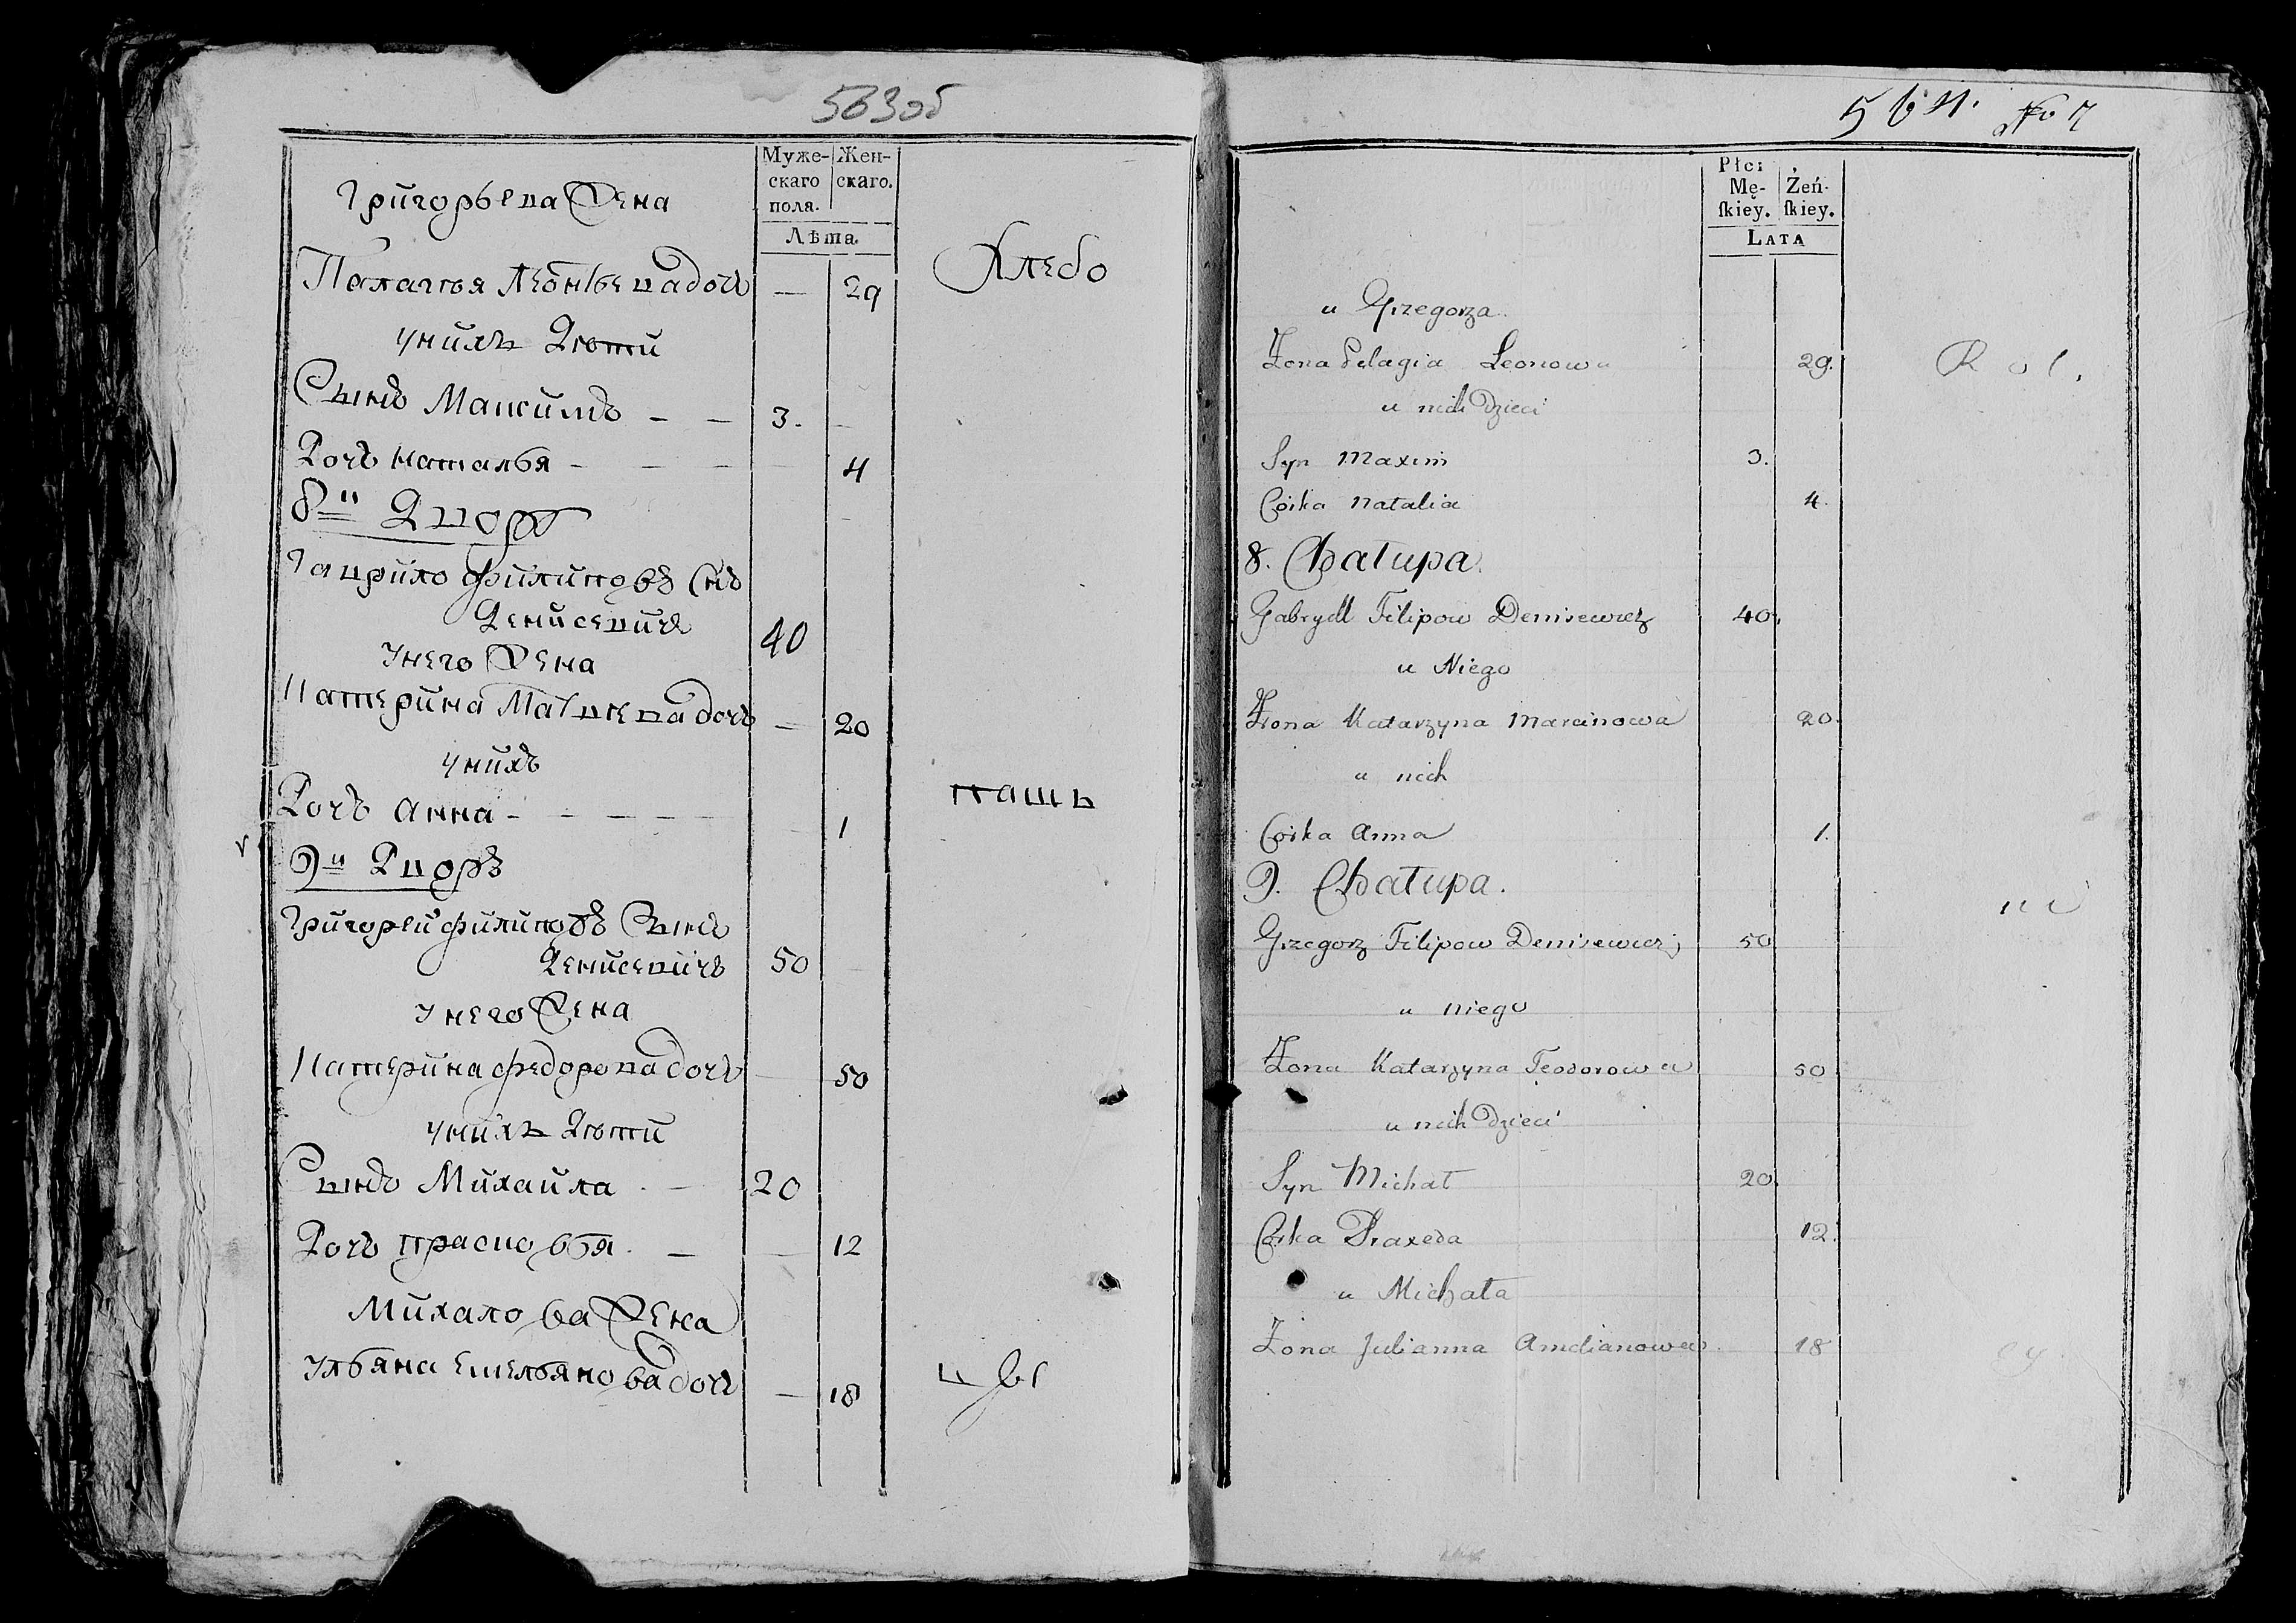 563об
Муже- Жен-
скаго скаго.
пола.
Лѣта.
Григорьева Жена
Палагея Леонтьева дочь — 29 Хлебо
у нихъ Дѣти
Сынъ Максимъ — — 3. —
Дочь Наталья — — — — 4
8й Дворъ
Гаврило Филиповъ Снъ
Денисевичь 40
У него Жена
Катерина Матвѣева дочь — 20
у нихъ
Дочь Анна — — — — — 1 паш
9й Дворъ
Григорей Филиповъ Сынъ
Денисевичь 50 —
У него Жена
Катерина Федорова дочь — 50
у нихъ Дѣти
Сынъ Михайла — 20
Дочь Прасковья — — 12
Михалова Жена
Ульяна Емельянова дочь — 18 цы
564. № 7
Płci
Mę- Żeń-
ſkiey. ſkiey.
LATA
u Grzegorza
Żona Pelagia Leonowa 29. Rol.
u nich Dzieci
Syn Maxim 3.
Córka Natalia 4.
8. Chałupa.
Gabryel Filipow Denisewicz 40.
u Niego
Żona Katarzyna Marcinowa 20.
u nich
Córka Anna 1.
9. Chałupa.
ni
Grzegorz Filipow Denisewicz 50
u niego
Żona Katarzyna Teodorowa 50
u nich Dzieci
Syn Michał 20.
Córka Praxeda 12.
u Michała
Żona Julianna Amelianowa 18 cy